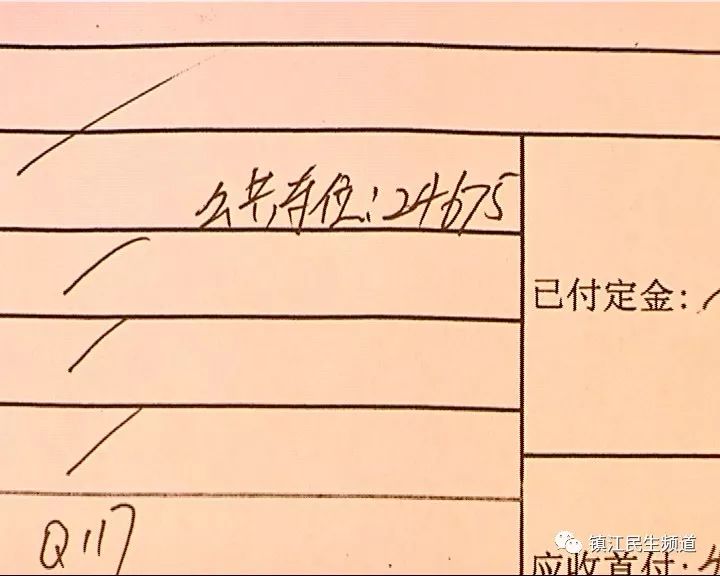 公共车位：24675
已付定金：
Q117
应收首付：
镇江民生频道